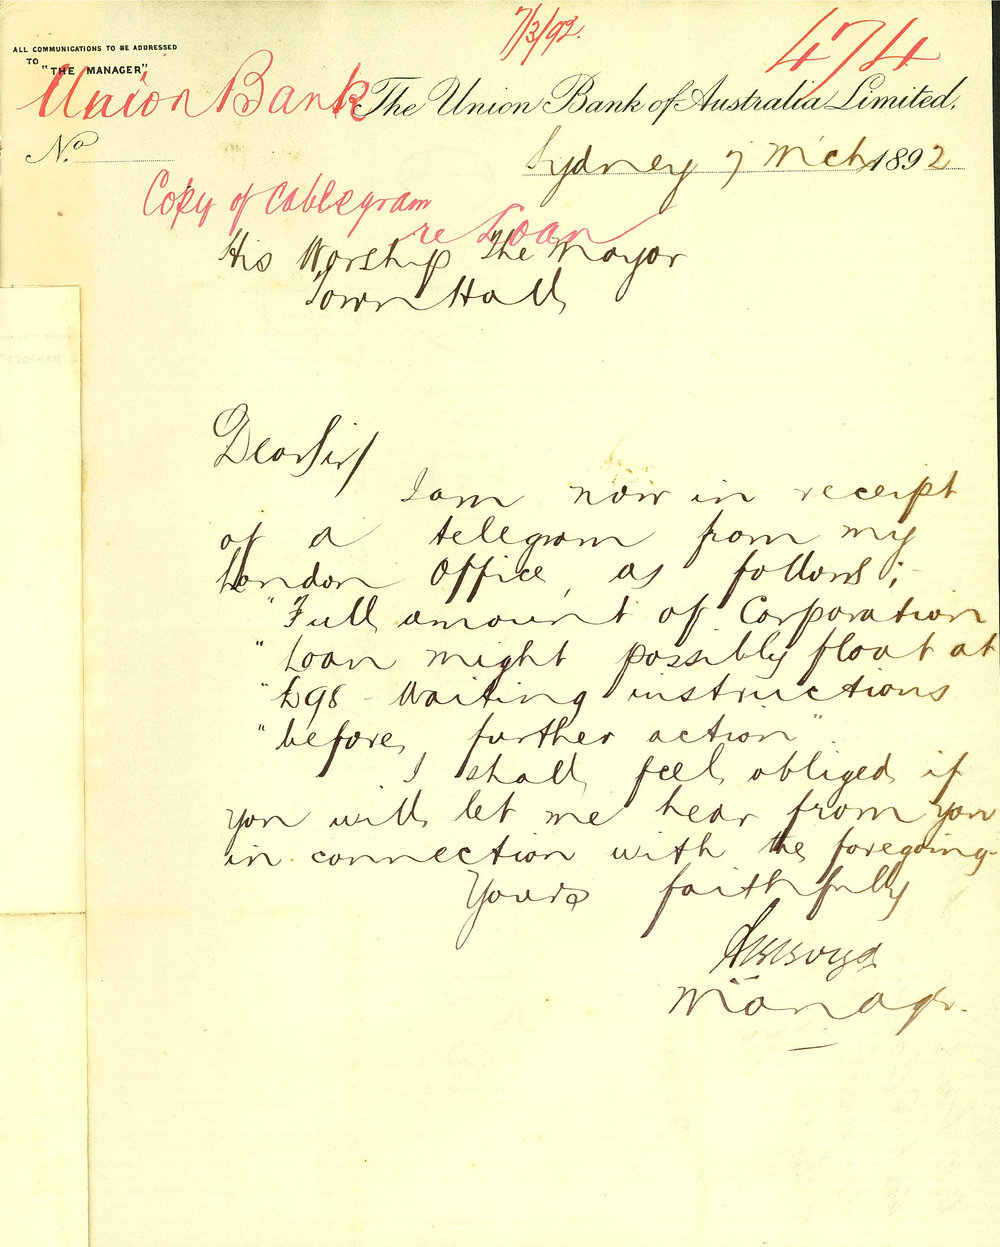 7/3/92.
474
ALL COMMUNICATIONS TO BE ADDRESSED
TO "THE MANAGER"
Union Bank
The Union Bank of Australia Limited.
No.
Sydney 7 Mch 1892
Copy of Cablegram
re Loan
His Worship The Mayor
Town Hall
Dear Sir/
I am now in receipt
of a telegram from my
London Office, as follows;-
"Full amount of Corporation
"Loan might possibly float at
"£98 - Waiting instructions
"before further action"
I shall feel obliged if
you will let me hear from you
in connection with the foregoing-
Yours faithfully
Manager.